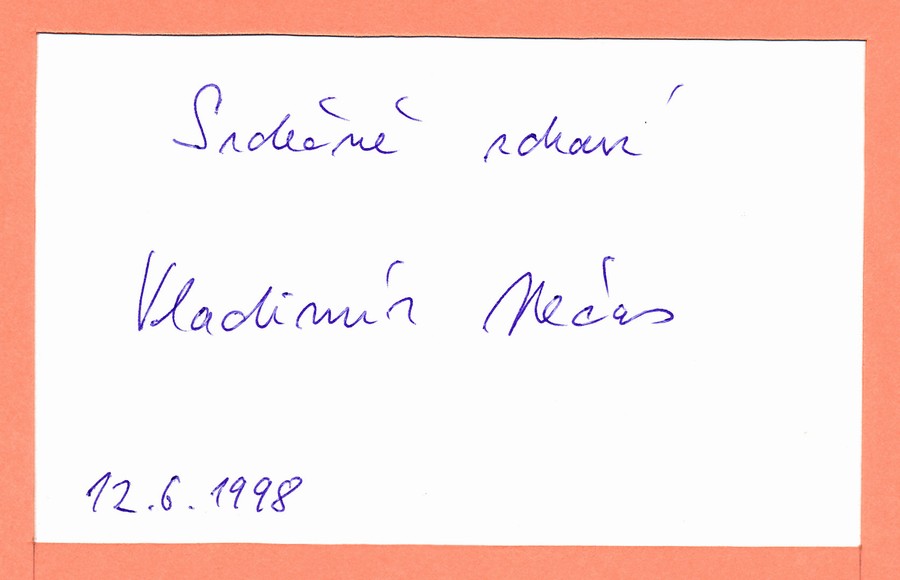 Srdečně zdraví
Vladimír Nečas
12.6.1998